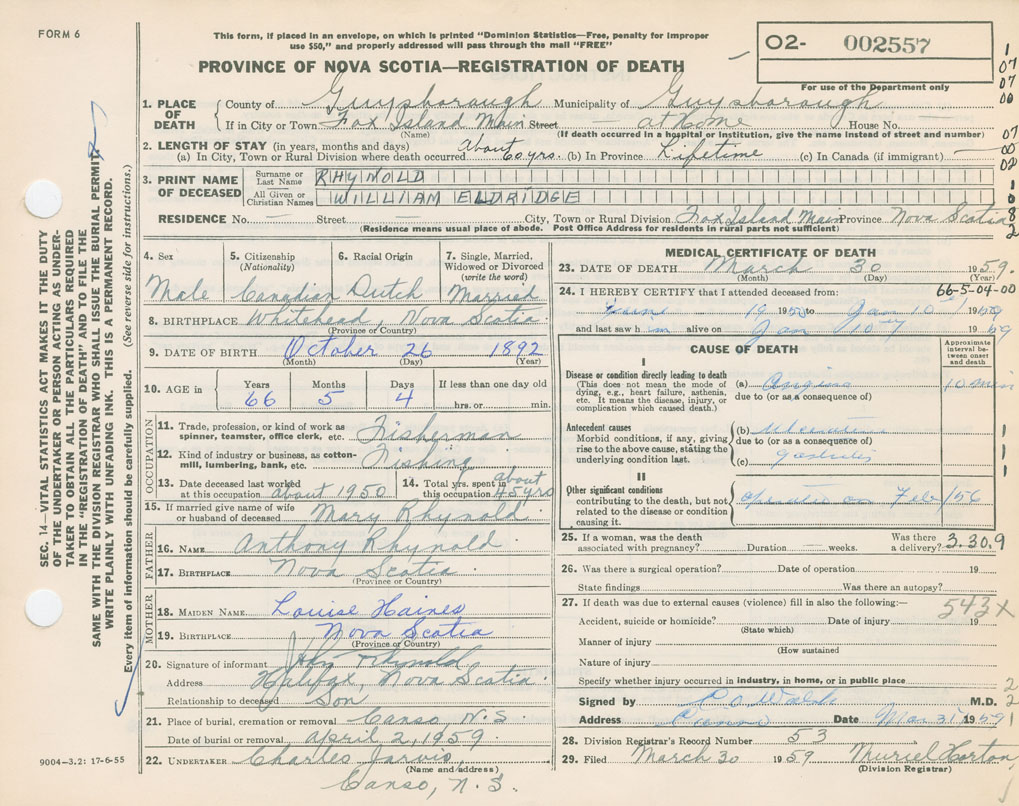 FORM 6
This form, if placed in an envelope, on which is printed "Dominion Statistics—Free, penalty for improper
use $50," and properly addressed will pass through the mail "FREE"
O2- 002557
For use of the Department only
PROVINCE OF NOVA SCOTIA—REGISTRATION OF DEATH
1. PLACE OF DEATH { County of Guysborough Municipality of Guysborough
If in City or Town Fox Island Main Street — at Home House No. —
(Name) (If death occurred in a hospital or institution, give the name instead of street and number)
2. LENGTH OF STAY (in years, months and days)
(a) In City, Town or Rural Division where death occurred About 60 yrs. (b) In Province Lifetime (c) In Canada (if immigrant) —
3. PRINT NAME OF DECEASED { Surname or Last Name RHYNOLD
All Given or Christian Names WILLIAM ELDRIDGE
RESIDENCE No. — Street — City, Town or Rural Division Fox Island Main Province Nova Scotia
(Residence means usual place of abode. Post Office Address for residents in rural parts not sufficient)
4. Sex Male
5. Citizenship (Nationality) Canadian
6. Racial Origin Dutch
7. Single, Married, Widowed or Divorced (write the word) Married
8. BIRTHPLACE Whitehead, Nova Scotia.
(Province or Country)
9. DATE OF BIRTH October 26 1892
(Month) (Day) (Year)
10. AGE in { Years 66 Months 5 Days 4 If less than one day old
hrs. or min.
OCCUPATION
11. Trade, profession, or kind of work as spinner, teamster, office clerk, etc. Fisherman
12. Kind of industry or business, as cotton-mill, lumbering, bank, etc. Fishing
13. Date deceased last worked at this occupation about 1950
14. Total yrs. spent in this occupation about 45 yrs
15. If married give name of wife or husband of deceased Mary Rhynold
FATHER
16. NAME Anthony Rhynold
17. BIRTHPLACE Nova Scotia
(Province or Country)
MOTHER
18. MAIDEN NAME Louise Haines
19. BIRTHPLACE Nova Scotia
(Province or Country)
20. Signature of informant Rhynold
Address Halifax, Nova Scotia
Relationship to deceased Son
21. Place of burial, cremation or removal Canso, N.S
Date of burial or removal april 2, 1959
22. UNDERTAKER Charles Jarvis,
(Name and address)
Canso, N.S.
MEDICAL CERTIFICATE OF DEATH
23. DATE OF DEATH March 30 1959.
(Month) (Day) (Year)
24. I HEREBY CERTIFY that I attended deceased from: 66-5-04-00
19 50 to Jan 10 1959
and last saw him alive on Jan 10 1959
CAUSE OF DEATH
Approximate interval between onset and death
I
Disease or condition directly leading to death
(This does not mean the mode of dying, e.g., heart failure, asthenia, etc. It means the disease, injury, or complication which caused death.)
(a) Angina 10 min
due to (or as a consequence of)
Antecedent causes
Morbid conditions, if any, giving rise to the above cause, stating the underlying condition last.
(b)
due to (or as a consequence of)
(c)
II
Other significant conditions
contributing to the death, but not related to the disease or condition causing it.
on Feb/56
25. If a woman, was the death associated with pregnancy? — Duration — weeks. Was there a delivery? 3.30.9
26. Was there a surgical operation? Date of operation 19
State findings Was there an autopsy?
27. If death was due to external causes (violence) fill in also the following:—
543X
Accident, suicide or homicide? Date of injury 19
(State which)
Manner of injury
(How sustained
Nature of injury
Specify whether injury occurred in industry, in home, or in public place
Signed by M.D.
Address Canso Date Mar 31 1959
28. Division Registrar's Record Number 53
29. Filed March 30 1959 Muriel Horton
(Division Registrar)
SEC. 14—VITAL STATISTICS ACT MAKES IT THE DUTY
OF THE UNDERTAKER OR PERSON ACTING AS UNDER-
TAKER TO OBTAIN ALL THE PARTICULARS REQUIRED
IN THE "REGISTRATION OF DEATH" AND TO FILE THE
SAME WITH THE DIVISION REGISTRAR WHO SHALL ISSUE THE BURIAL PERMIT.
WRITE PLAINLY WITH UNFADING INK. THIS IS A PERMANENT RECORD.
Every item of information should be carefully supplied. (See reverse side for instructions.)
9004—3.2: 17-6-55
1
07
07
00
07
00
02
1
0
8
2
1
1
1
2
2
1